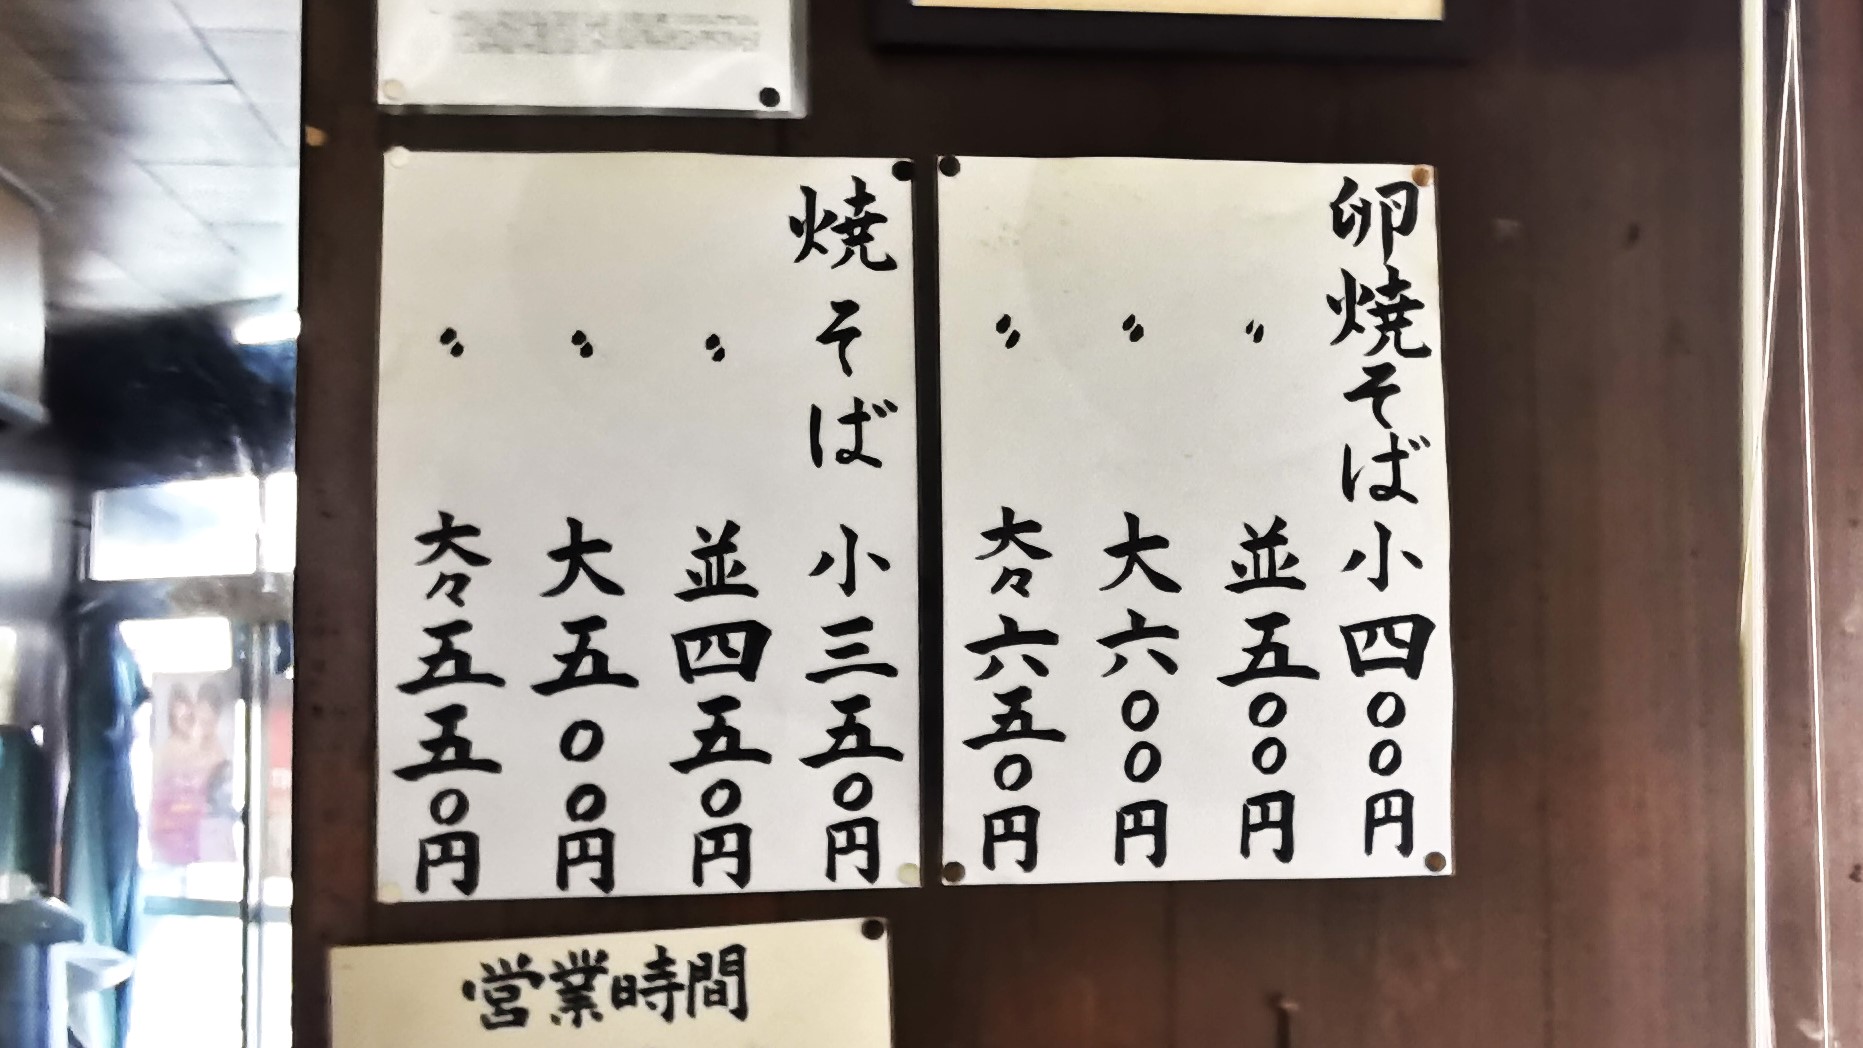 卵焼そば 小 四〇〇円
〃 並 五〇〇円
〃 大 六〇〇円
〃 大々 六五〇円
焼そば 小 三五〇円
〃 並 四五〇円
〃 大 五〇〇円
〃 大々 五五〇円
営業時間